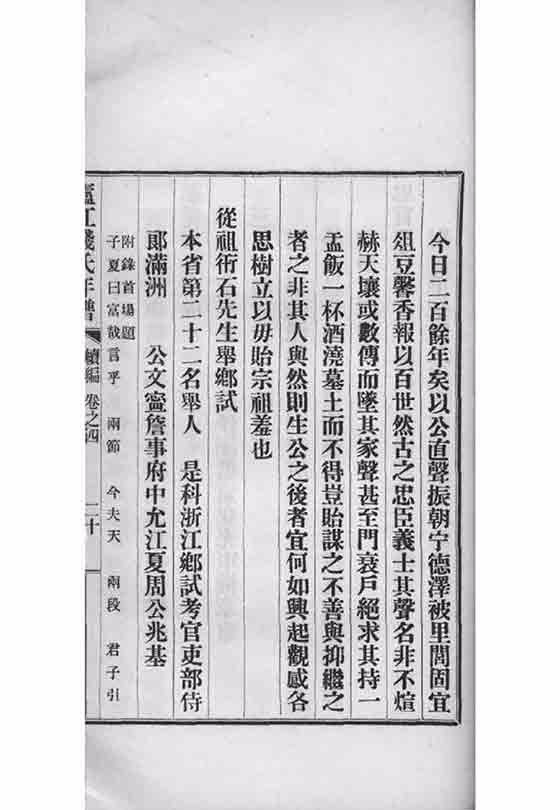 今日二百餘年矣以公直聲振朝宁德澤被里閭固宜
俎豆馨香報以百世然古之忠臣義士其聲名非不烜
赫天壤或數傳而墜其家聲甚至門衰戶絕求其持一
盂飯一杯酒澆墓土而不得豈貽謀之不善與抑繼之
者之非其人與然則生公之後者宜何如興起觀感各
思樹立以毋貽宗祖羞也
從祖衎石先生舉鄉試
本省第二十二名舉人 是科浙江鄉試考官吏部侍
郞滿洲 公文寧詹事府中允江夏周公兆基
附錄首場題
子夏曰富哉言乎 兩節 今夫天 兩段 君子引
廬江錢氏年譜 續編 卷之四 二十